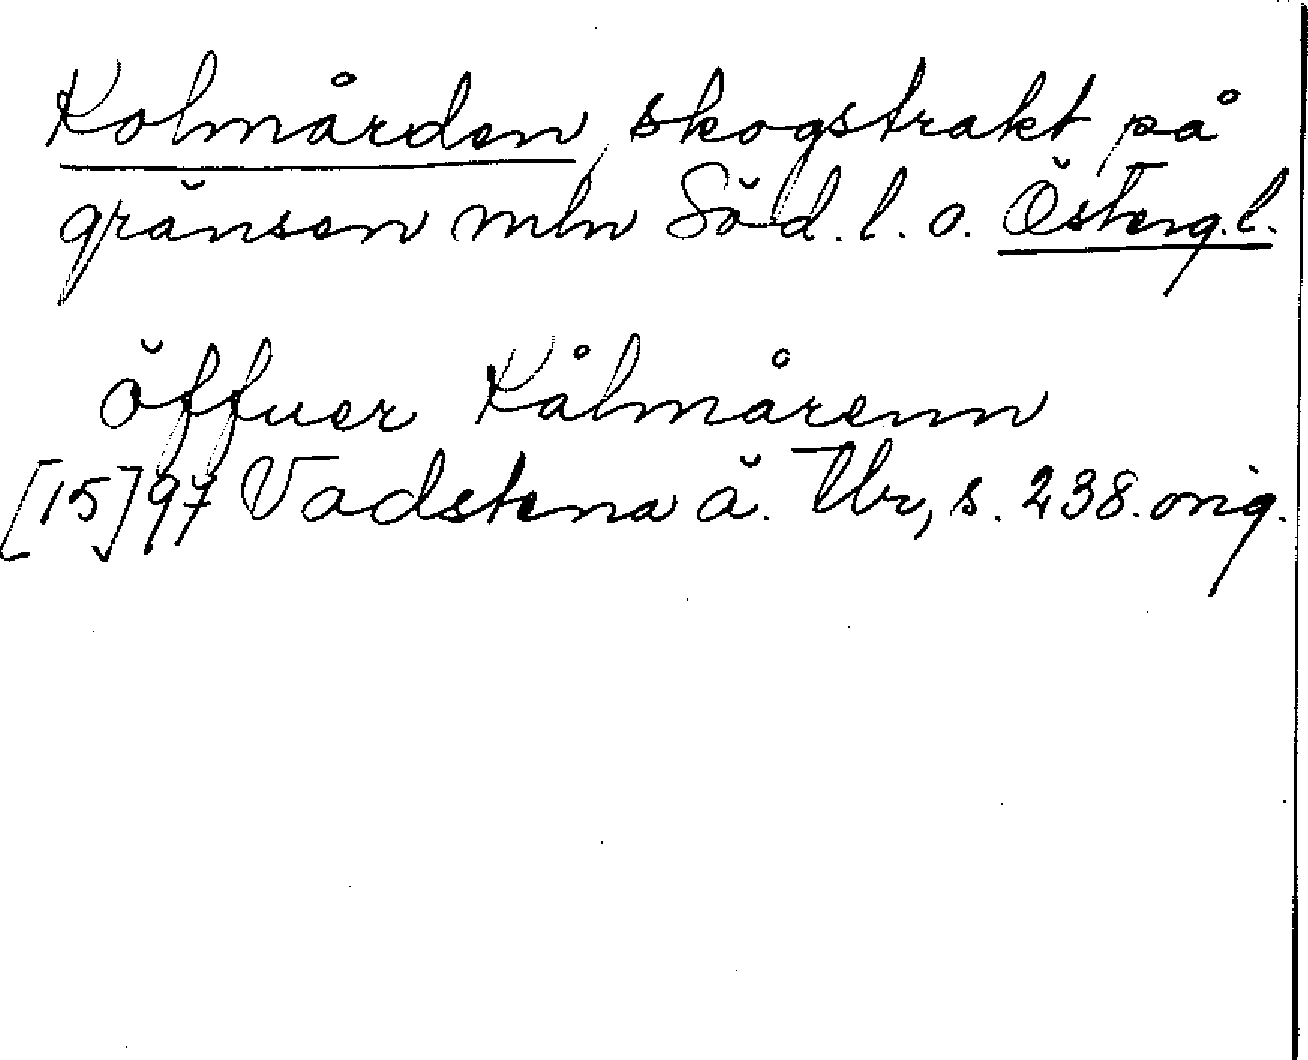 Kolmården, skogstrakt på
gränsen mln Söd. l. o. Österg. l.
öffuer Kålmårenn
[15]97 Vadstena ä. Tbr, s. 238. orig.